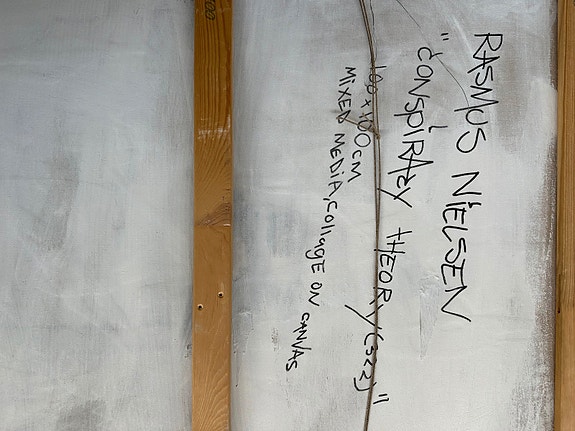 RASMUS NIELSEN
"CONSPIRACY THEORY (322)"
100 x 100 CM
MIXED MEDIA, COllAGE ON CANVAS